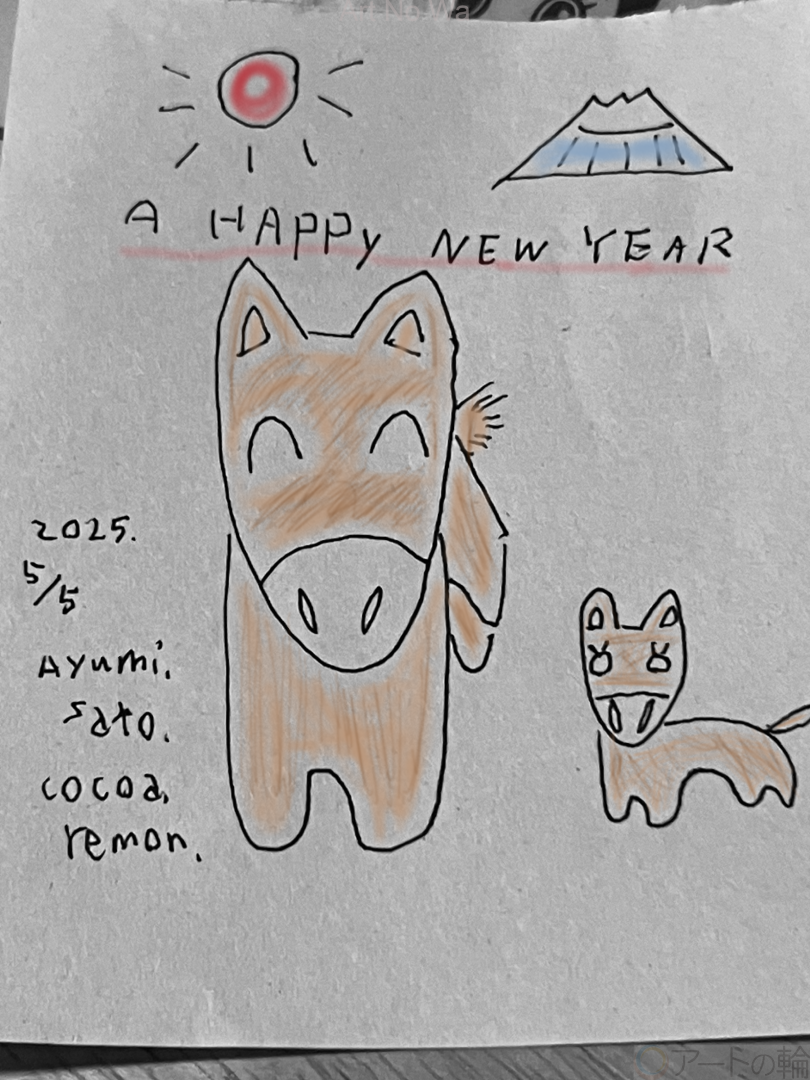 A HAPPY NEW YEAR
2025.
5/5
Ayumi.
sato.
cocoa,
remon.
アートの輪